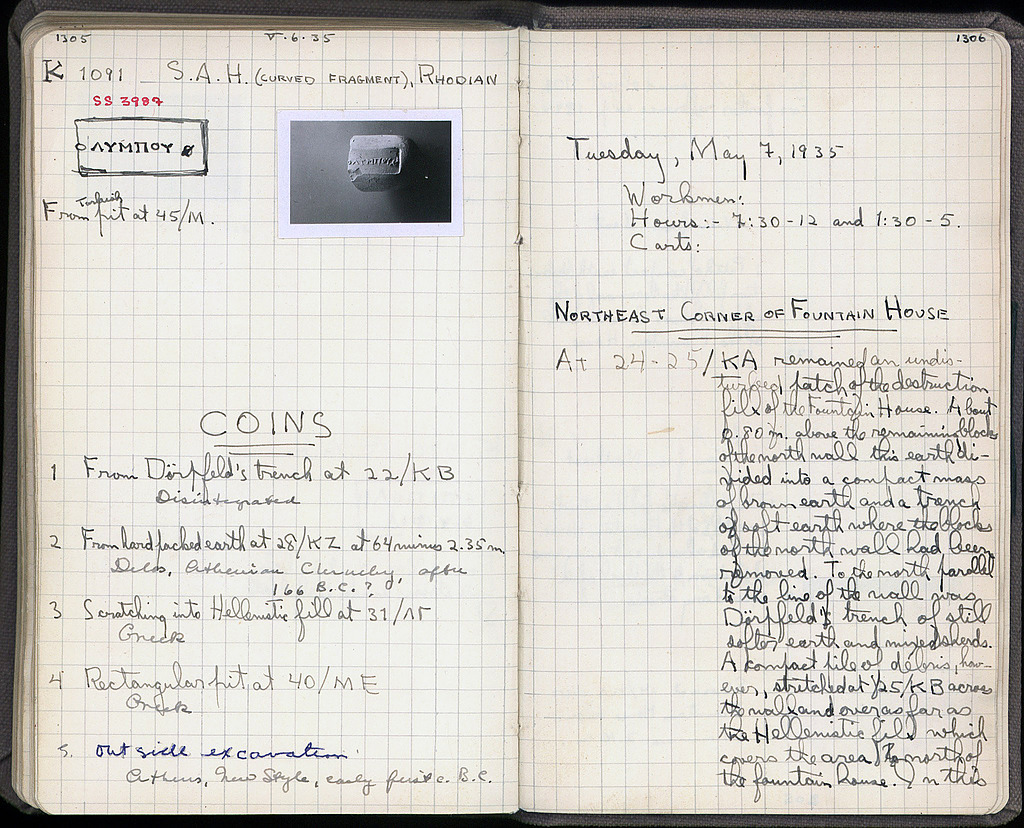 1305
V·6·35
K 1091 S.A.H. (CURVED FRAGMENT), RHODIAN
SS 3989
ΟΛΥΜΠΟΥ
Turkish
From pit at 45/M.
COINS
1 From Dörpfeld's trench at 22/KB
Disintegrated
2 From hard packed earth at 28/KZ at 64 minus 2.35 m.
Delos, Athenian Cleruchy, after
166 B.C.?
3 Scratching into Hellenistic fill at 31/ΛΓ
Greek
4 Rectangular pit at 40/ME
Greek
5. Outside excavation
Athens, New Style, early first c. B.C.
1306
Tuesday, May 7, 1935
Workmen:
Hours:- 7:30-12 and 1:30-5.
Carts:
NORTHEAST CORNER OF FOUNTAIN HOUSE
At 24-25/KA remained an undis-
turbed patch of the destruction
fill of the Fountain House. About
0.80 m. above the remaining blocks
of the north wall this earth di-
vided into a compact mass
of brown earth and a trench
of soft earth where the blocks
of the north wall had been
removed. To the north parallel
to the line of the wall was
Dörpfeld's trench of still
softer earth and mixed sherds.
A compact pile of debris, how-
ever, stretched at 25/KB across
the wall and over as far as
the Hellenistic fill which
covers the area to north of
the fountain house. In this